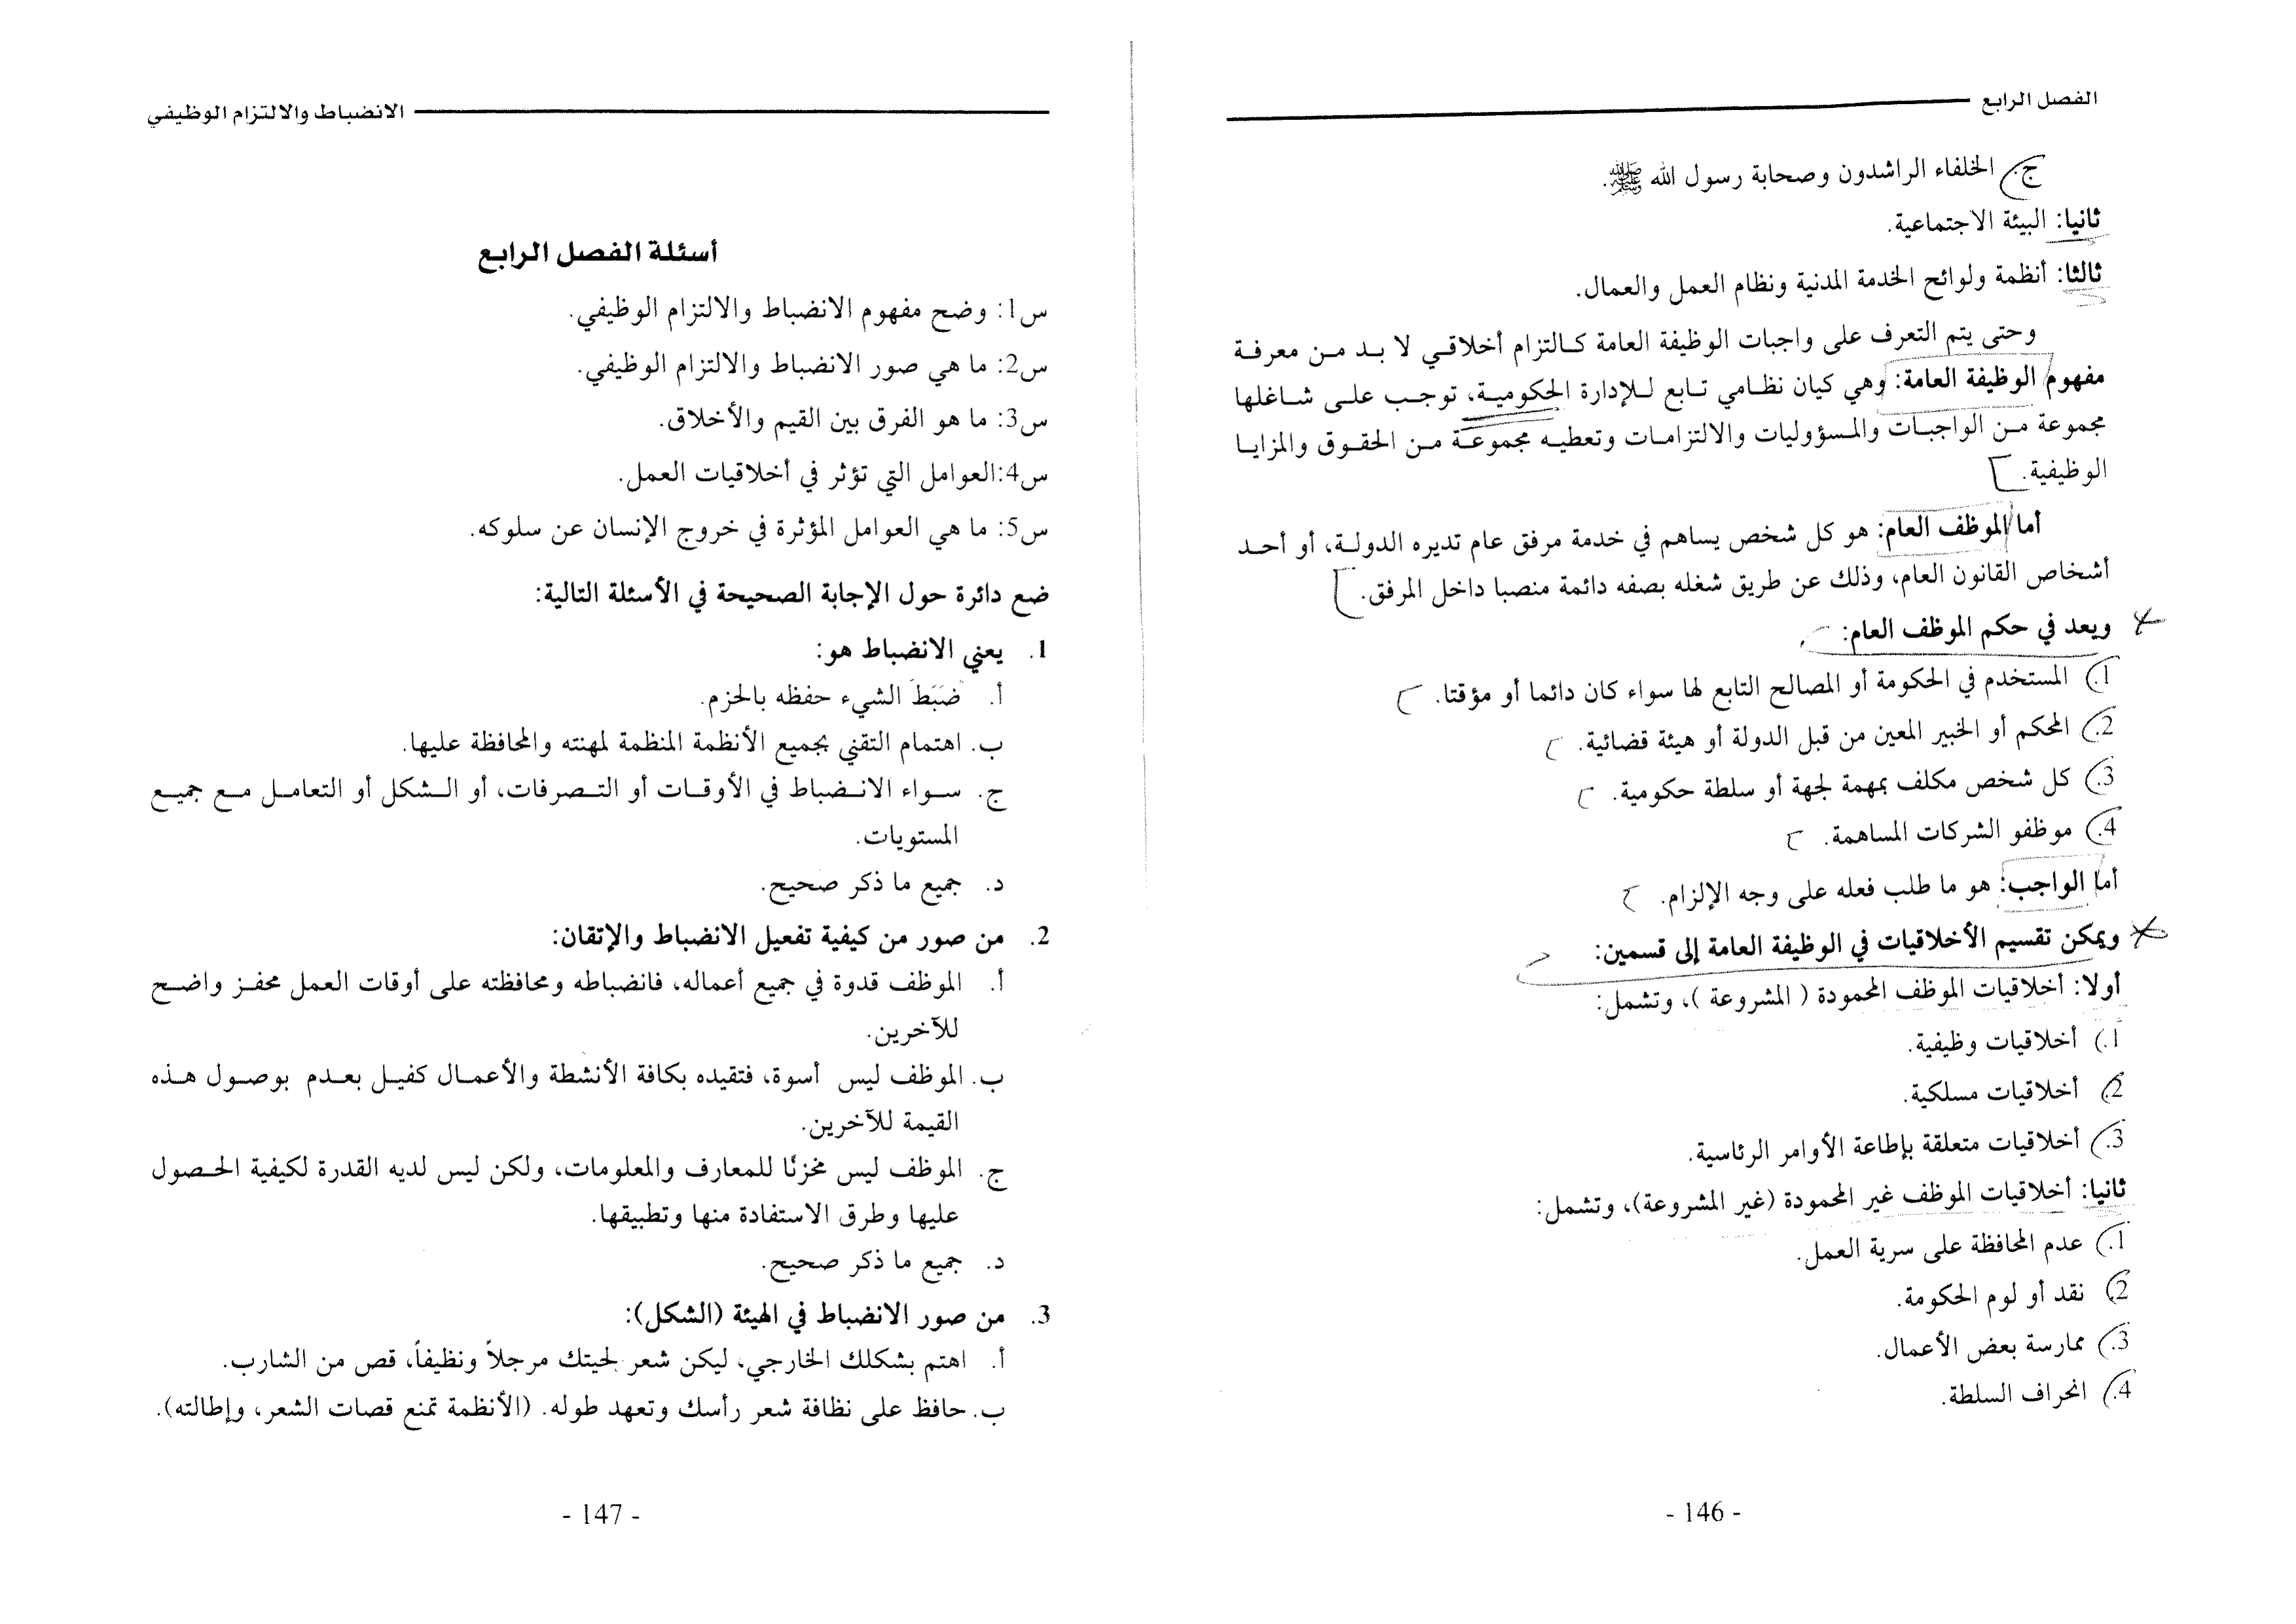 الفصل الرابع
ج. الخلفاء الراشدون وصحابة رسول الله ﷺ.
ثانيا: البيئة الاجتماعية.
ثالثا: أنظمة ولوائح الخدمة المدنية ونظام العمل والعمال.
وحتى يتم التعرف على واجبات الوظيفة العامة كالتزام أخلاقي لا بد من معرفة
مفهوم الوظيفة العامة: وهي كيان نظامي تابع للإدارة الحكومية، توجب على شاغلها
مجموعة من الواجبات والمسؤوليات والالتزامات وتعطيه مجموعة من الحقوق والمزايا
الوظيفية.
أما الموظف العام: هو كل شخص يساهم في خدمة مرفق عام تديره الدولة، أو أحد
أشخاص القانون العام، وذلك عن طريق شغله بصفه دائمة منصبا داخل المرفق.
ويعد في حكم الموظف العام:
1. المستخدم في الحكومة أو المصالح التابع لها سواء كان دائما أو مؤقتا.
2. المحكم أو الخبير المعين من قبل الدولة أو هيئة قضائية.
3. كل شخص مكلف بمهمة لجهة أو سلطة حكومية.
4. موظفو الشركات المساهمة.
أما الواجب: هو ما طلب فعله على وجه الإلزام.
ويمكن تقسيم الأخلاقيات في الوظيفة العامة إلى قسمين:
أولا: أخلاقيات الموظف المحمودة ( المشروعة )، وتشمل:
1. أخلاقيات وظيفية.
2. أخلاقيات مسلكية.
3. أخلاقيات متعلقة بإطاعة الأوامر الرئاسية.
ثانيا: أخلاقيات الموظف غير المحمودة (غير المشروعة)، وتشمل:
1. عدم المحافظة على سرية العمل.
2. نقد أو لوم الحكومة.
3. ممارسة بعض الأعمال.
4. انحراف السلطة.
- 146 -
الانضباط والالتزام الوظيفي
أسئلة الفصل الرابع
س1: وضح مفهوم الانضباط والالتزام الوظيفي.
س2: ما هي صور الانضباط والالتزام الوظيفي.
س3: ما هو الفرق بين القيم والأخلاق.
س4:العوامل التي تؤثر في أخلاقيات العمل.
س5: ما هي العوامل المؤثرة في خروج الإنسان عن سلوكه.
ضع دائرة حول الإجابة الصحيحة في الأسئلة التالية:
1. يعني الانضباط هو:
أ. ضَبَطَ الشيء حفظه بالحزم.
ب. اهتمام التقني بجميع الأنظمة المنظمة لمهنته والمحافظة عليها.
ج. سواء الانضباط في الأوقات أو التصرفات، أو الشكل أو التعامل مع جميع
المستويات.
د. جميع ما ذكر صحيح.
2. من صور من كيفية تفعيل الانضباط والإتقان:
أ. الموظف قدوة في جميع أعماله، فانضباطه ومحافظته على أوقات العمل محفز واضح
للآخرين.
ب. الموظف ليس أسوة، فتقيده بكافة الأنشطة والأعمال كفيل بعدم بوصول هذه
القيمة للآخرين.
ج. الموظف ليس مخزنًا للمعارف والمعلومات، ولكن ليس لديه القدرة لكيفية الحصول
عليها وطرق الاستفادة منها وتطبيقها.
د. جميع ما ذكر صحيح.
3. من صور الانضباط في الهيئة (الشكل):
أ. اهتم بشكلك الخارجي، ليكن شعر لحيتك مرجلاً ونظيفاً، قص من الشارب.
ب. حافظ على نظافة شعر رأسك وتعهد طوله. (الأنظمة تمنع قصات الشعر، وإطالته).
- 147 -